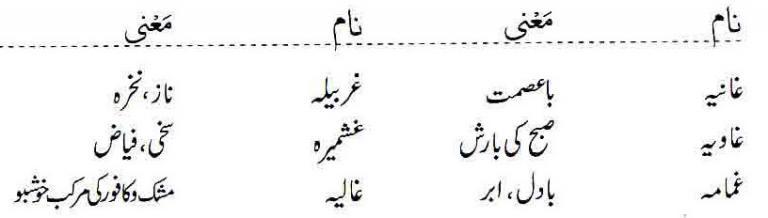 نام مَعْنی نام مَعْنی
غانیہ باعصمت غربیلہ ناز، نخرہ
غاویہ صبح کی بارش غشمیرہ سخی، فیاض
غمامہ بادل، ابر غالیہ مشک و کافور کی مرکب خوشبو